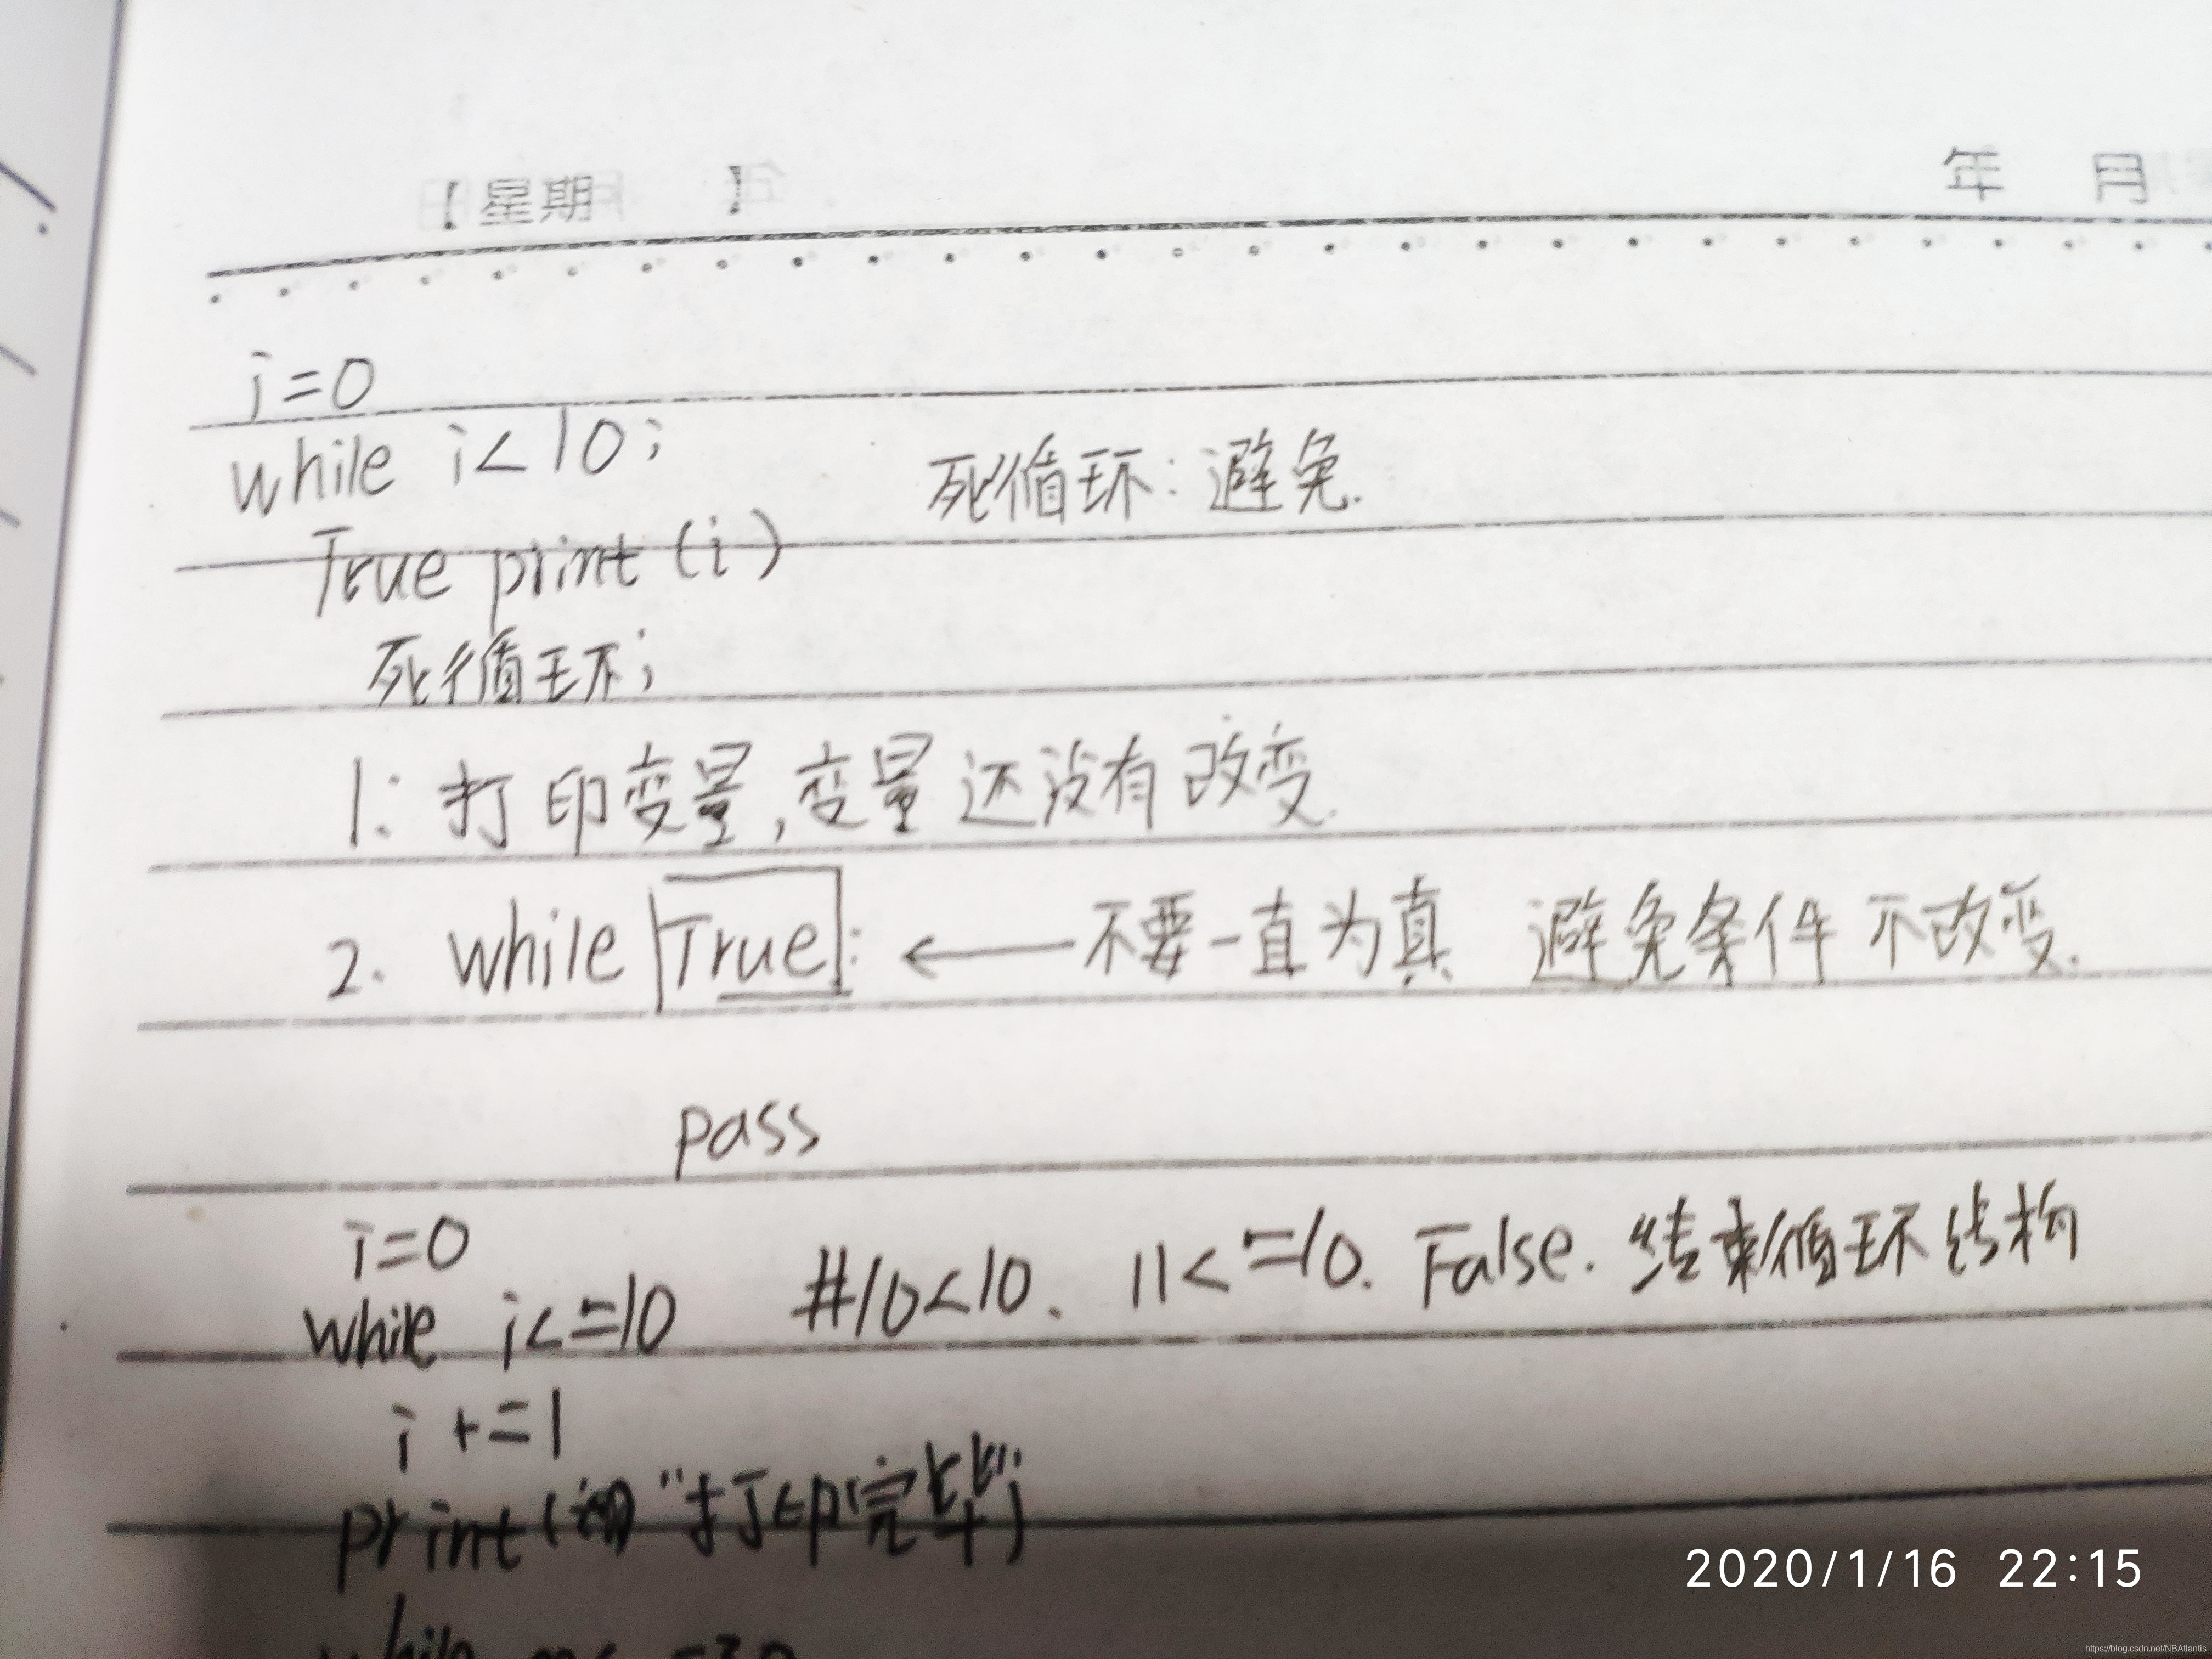 【星期 】 年 月
i=0
while i<10;
死循环:避免.
True print(i)
死循环;
1:打印变量,变量还没有改变.
2. while True: ← 不要一直为真 避免条件不改变.
pass
i=0
while i<=10 #10<10. 11<=10. False. 结束循环结构
i +=1
print( "打印完毕")
while
2020/1/16 22:15
https://blog.csdn.net/NBAtlantis